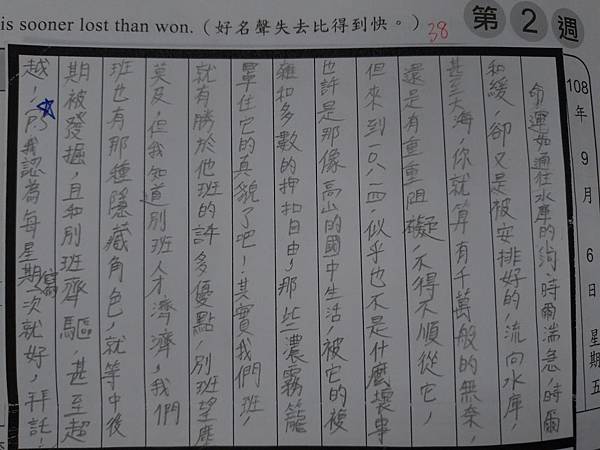 is sooner lost than won.(好名聲失去比得到快。)
38
第2週
108年9月6日 星期五
命運如通往水庫的河,時爾湍急,時爾
和緩,卻又是被安排好的,流向水庫,
甚至大海,你就算有千萬般的無奈,
還是有重重阻礙,不得不順從它,
但來到 似乎也不是什麼壞事
也許是那像高山的國中生活,被它的複
雜和多數的押扣自由,那些濃霧籠
罩住它的真貌了吧!其實我們班,
就有勝於他班的許多優點,別班望塵
莫及,但我知道別班人才濟濟,我們
班也有那種隱藏角色,就等中後
期被發掘,且和別班齊驅,甚至超
越!我認為每星期寫一次就好,拜託!